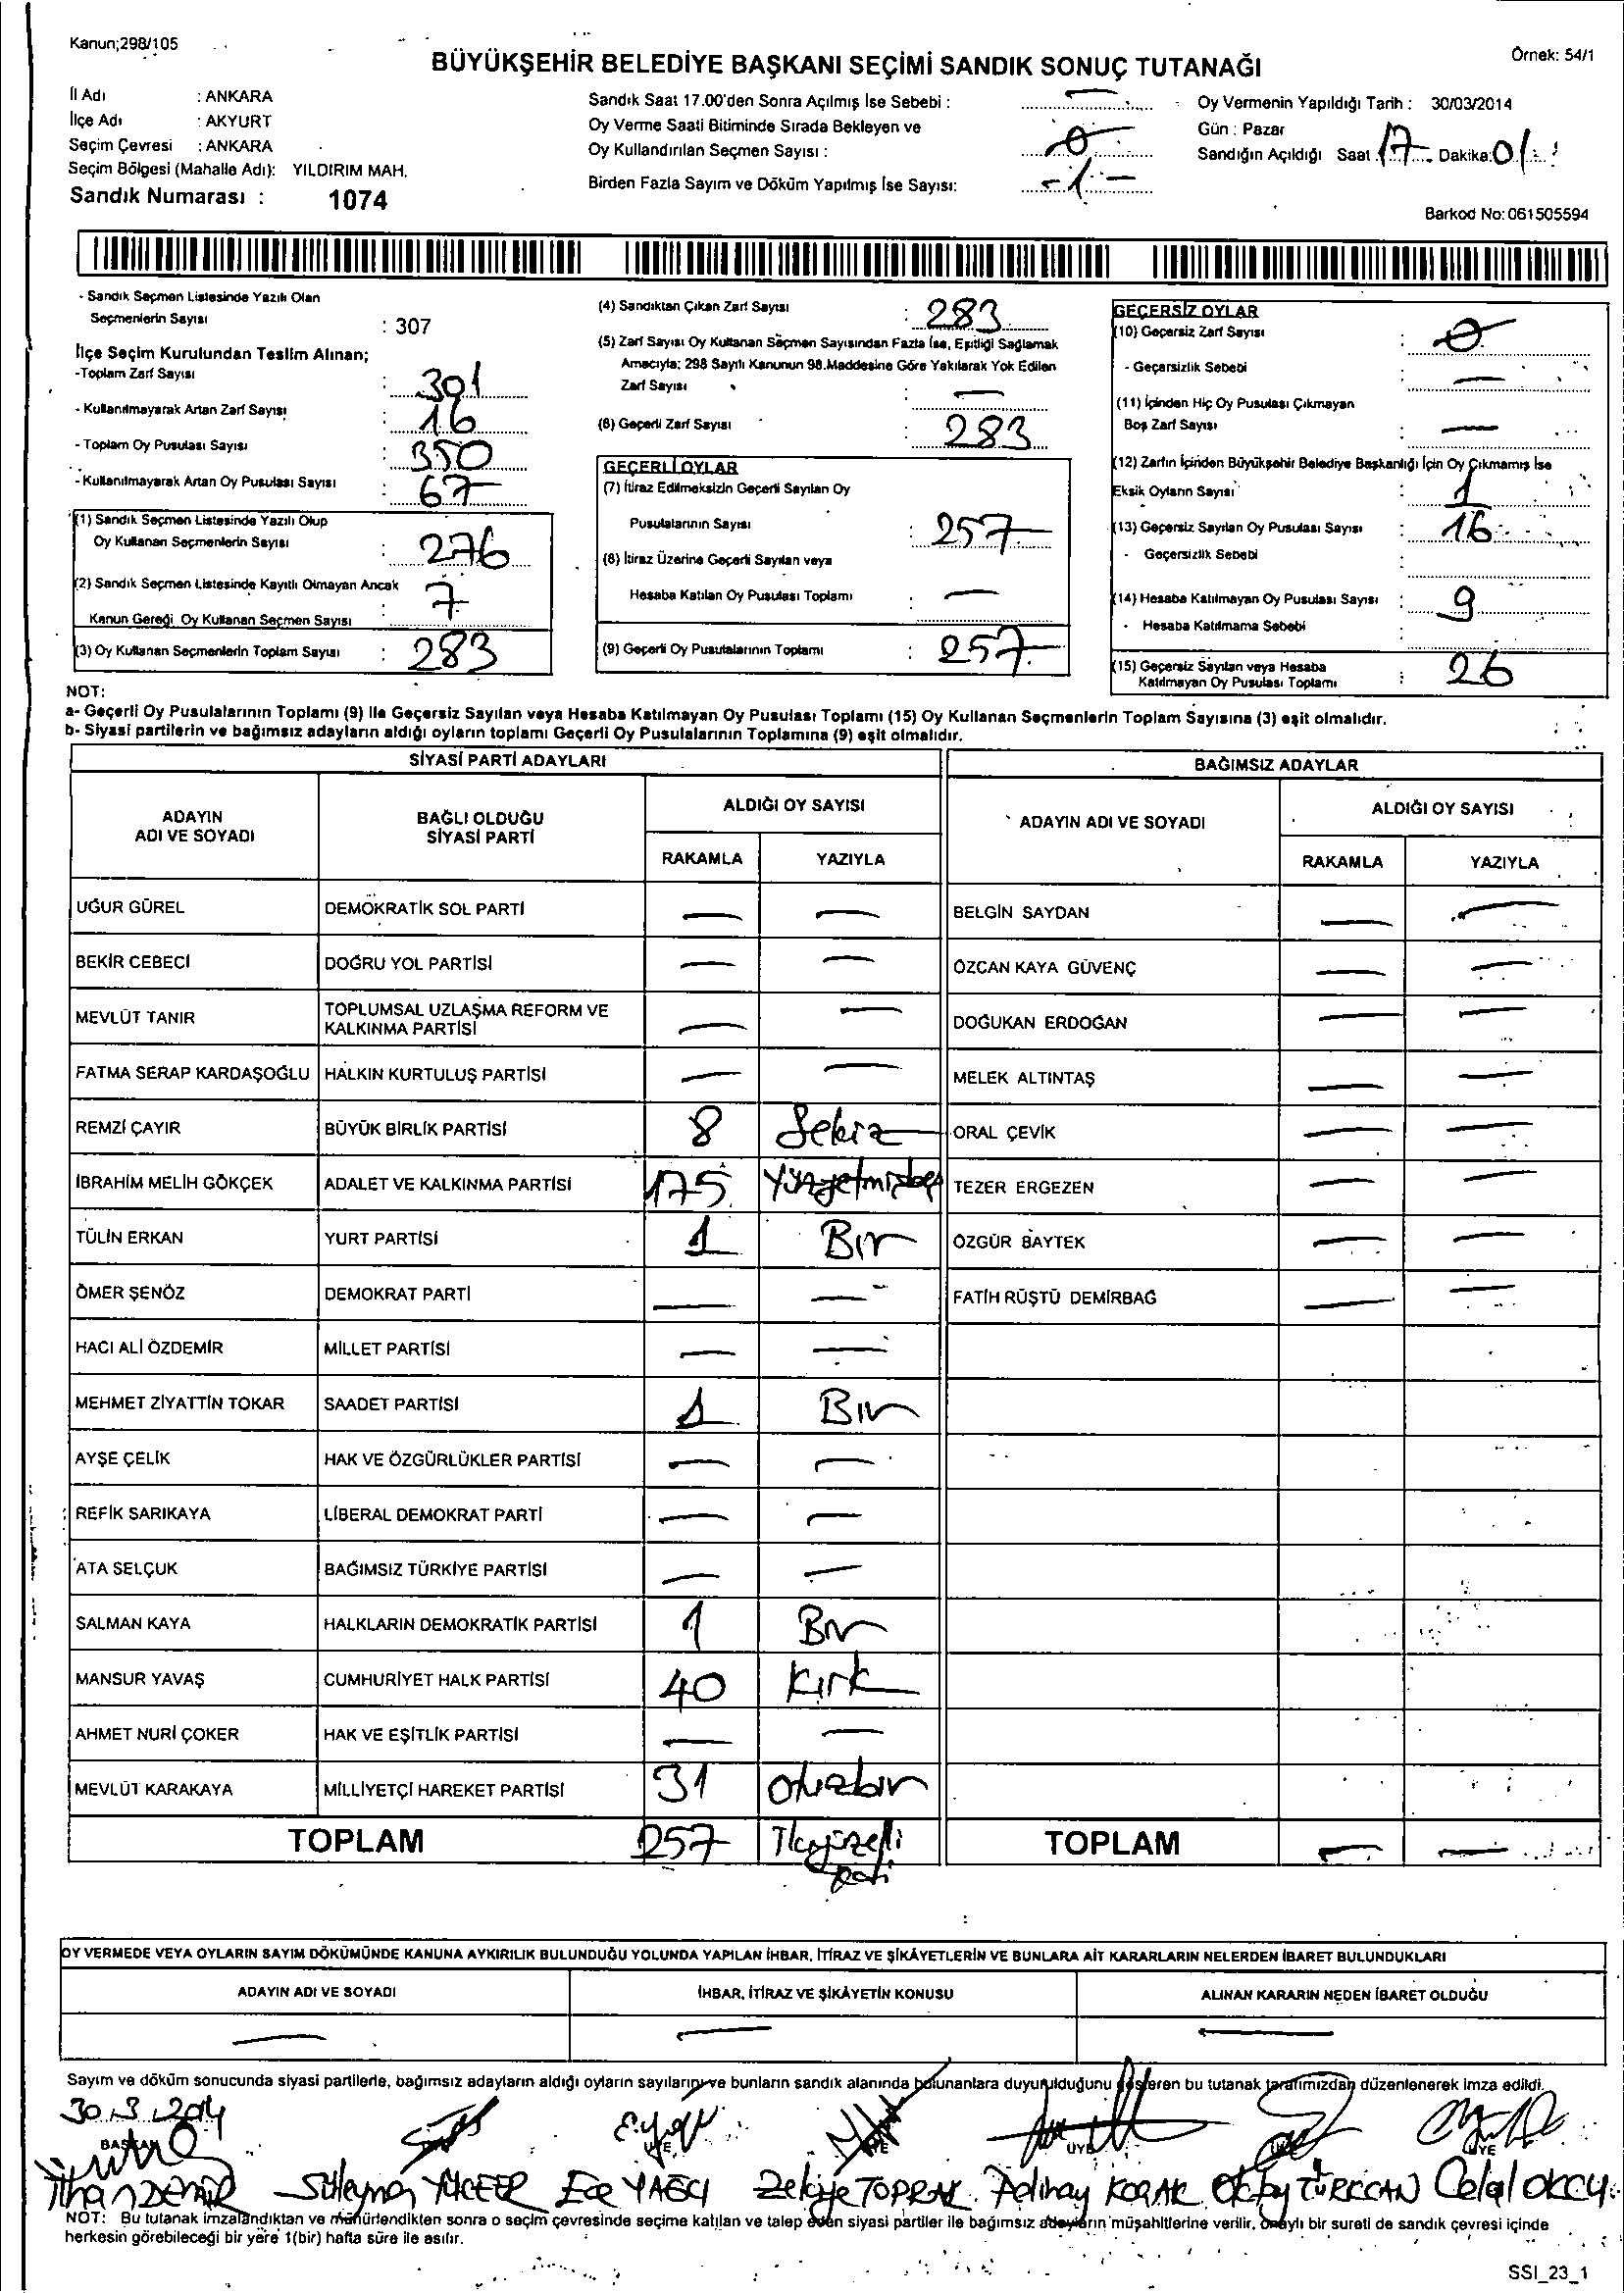 Kanun;298/105
Örnek: 54/1
BÜYÜKŞEHİR BELEDİYE BAŞKANI SEÇİMİ SANDIK SONUÇ TUTANAĞI
İl Adı : ANKARA
İlçe Adı : AKYURT
Seçim Çevresi : ANKARA
Seçim Bölgesi (Mahalle Adı): YILDIRIM MAH.
Sandık Numarası : 1074
Sandık Saat 17.00'den Sonra Açılmış İse Sebebi : —
Oy Verme Saati Bitiminde Sırada Bekleyen ve
Oy Kullandırılan Seçmen Sayısı : 0
Birden Fazla Sayım ve Döküm Yapılmış İse Sayısı: -1-
Oy Vermenin Yapıldığı Tarih : 30/03/2014
Gün : Pazar
Sandığın Açıldığı Saat 17 Dakika: 01
Barkod No:061505594
- Sandık Seçmen Listesinde Yazılı Olan
Seçmenlerin Sayısı : 307
İlçe Seçim Kurulundan Teslim Alınan;
-Toplam Zarf Sayısı : 301
- Kullanılmayarak Artan Zarf Sayışı : 16
- Toplam Oy Pusulası Sayısı : 350
- Kullanılmayarak Artan Oy Pusulası Sayısı : 67
(1) Sandık Seçmen Listesinde Yazılı Olup
Oy Kullanan Seçmenlerin Sayısı : 276
(2) Sandık Seçmen Listesinde Kayıtlı Olmayan Ancak
Kanun Gereği Oy Kullanan Seçmen Sayısı : 7
(3) Oy Kullanan Seçmenlerin Toplam Sayısı : 283
(4) Sandıktan Çıkan Zarf Sayısı : 283
(5) Zarf Sayısı Oy Kullanan Seçmen Sayısından Fazla İse, Eşitliği Sağlamak
Amacıyla; 298 Sayılı Kanunun 98.Maddesine Göre Yakılarak Yok Edilen
Zarf Sayısı : —
(6) Geçerli Zarf Sayısı : 283
GEÇERLİ OYLAR
(7) İtiraz Edilmeksizin Geçerli Sayılan Oy
Pusulalarının Sayısı : 257
(8) İtiraz Üzerine Geçerli Sayılan veya
Hesaba Katılan Oy Pusulası Toplamı : —
(9) Geçerli Oy Pusulalarının Toplamı : 257
GEÇERSİZ OYLAR
(10) Geçersiz Zarf Sayısı : 0
- Geçersizlik Sebebi : —
(11) İçinden Hiç Oy Pusulası Çıkmayan
Boş Zarf Sayısı : —
(12) Zarfın İçinden Büyükşehir Belediye Başkanlığı İçin Oy Çıkmamış İse
Eksik Oyların Sayısı : 1
(13) Geçersiz Sayılan Oy Pusulası Sayısı : 16
- Geçersizlik Sebebi :
(14) Hesaba Katılmayan Oy Pusulası Sayısı : 9
- Hesaba Katılmama Sebebi :
(15) Geçersiz Sayılan veya Hesaba
Katılmayan Oy Pusulası Toplamı : 26
NOT:
a- Geçerli Oy Pusulalarının Toplamı (9) ile Geçersiz Sayılan veya Hesaba Katılmayan Oy Pusulası Toplamı (15) Oy Kullanan Seçmenlerin Toplam Sayısına (3) eşit olmalıdır.
b- Siyasi partilerin ve bağımsız adayların aldığı oyların toplamı Geçerli Oy Pusulalarının Toplamına (9) eşit olmalıdır.
SİYASİ PARTİ ADAYLARI
ADAYIN
ADI VE SOYADI
BAĞLI OLDUĞU
SİYASİ PARTİ
ALDIĞI OY SAYISI
RAKAMLA YAZIYLA
UĞUR GÜREL DEMOKRATİK SOL PARTİ — —
BEKİR CEBECİ DOĞRU YOL PARTİSİ — —
MEVLÜT TANIR TOPLUMSAL UZLAŞMA REFORM VE
KALKINMA PARTİSİ — —
FATMA SERAP KARDAŞOĞLU HALKIN KURTULUŞ PARTİSİ — —
REMZİ ÇAYIR BÜYÜK BİRLİK PARTİSİ 8 Sekiz
İBRAHİM MELİH GÖKÇEK ADALET VE KALKINMA PARTİSİ 175 Yüzyetmişbeş
TÜLİN ERKAN YURT PARTİSİ 1 Bir
ÖMER ŞENÖZ DEMOKRAT PARTİ — —
HACI ALİ ÖZDEMİR MİLLET PARTİSİ — —
MEHMET ZİYATTİN TOKAR SAADET PARTİSİ 1 Bir
AYŞE ÇELİK HAK VE ÖZGÜRLÜKLER PARTİSİ — —
REFİK SARIKAYA LİBERAL DEMOKRAT PARTİ — —
ATA SELÇUK BAĞIMSIZ TÜRKİYE PARTİSİ — —
SALMAN KAYA HALKLARIN DEMOKRATİK PARTİSİ 1 Bir
MANSUR YAVAŞ CUMHURİYET HALK PARTİSİ 40 Kırk
AHMET NURİ ÇOKER HAK VE EŞİTLİK PARTİSİ — —
MEVLÜT KARAKAYA MİLLİYETÇİ HAREKET PARTİSİ 31 otuzbir
TOPLAM 257 İkiyüzelli
yedi
BAĞIMSIZ ADAYLAR
ADAYIN ADI VE SOYADI
ALDIĞI OY SAYISI
RAKAMLA YAZIYLA
BELGİN SAYDAN — —
ÖZCAN KAYA GÜVENÇ — —
DOĞUKAN ERDOĞAN — —
MELEK ALTINTAŞ — —
ORAL ÇEVİK — —
TEZER ERGEZEN — —
ÖZGÜR BAYTEK — —
FATİH RÜŞTÜ DEMİRBAĞ — —
TOPLAM — —
OY VERMEDE VEYA OYLARIN SAYIM DÖKÜMÜNDE KANUNA AYKIRILIK BULUNDUĞU YOLUNDA YAPILAN İHBAR, İTİRAZ VE ŞİKÂYETLERİN VE BUNLARA AİT KARARLARIN NELERDEN İBARET BULUNDUKLARI
ADAYIN ADI VE SOYADI İHBAR, İTİRAZ VE ŞİKÂYETİN KONUSU ALINAN KARARIN NEDEN İBARET OLDUĞU
— — —
Sayım ve döküm sonucunda siyasi partilerle, bağımsız adayların aldığı oyların sayılarını ve bunların sandık alanında bulunanlara duyurulduğunu gösteren bu tutanak tarafımızdan düzenlenerek imza edildi.
30.3.2014
BAŞKAN ÜYE ÜYE ÜYE ÜYE ÜYE
İlhan DEMİR Süleyman YÜCEER Ece YAĞCI Zekiye TOPRAK Adınay KORAK Oktay TÜRKCAN Celal OKCU
NOT: Bu tutanak imzalandıktan ve mühürlendikten sonra o seçim çevresinde seçime katılan ve talep eden siyasi partiler ile bağımsız adayların müşahitlerine verilir, onaylı bir sureti de sandık çevresi içinde
herkesin görebileceği bir yere 1(bir) hafta süre ile asılır.
SSI_23_1